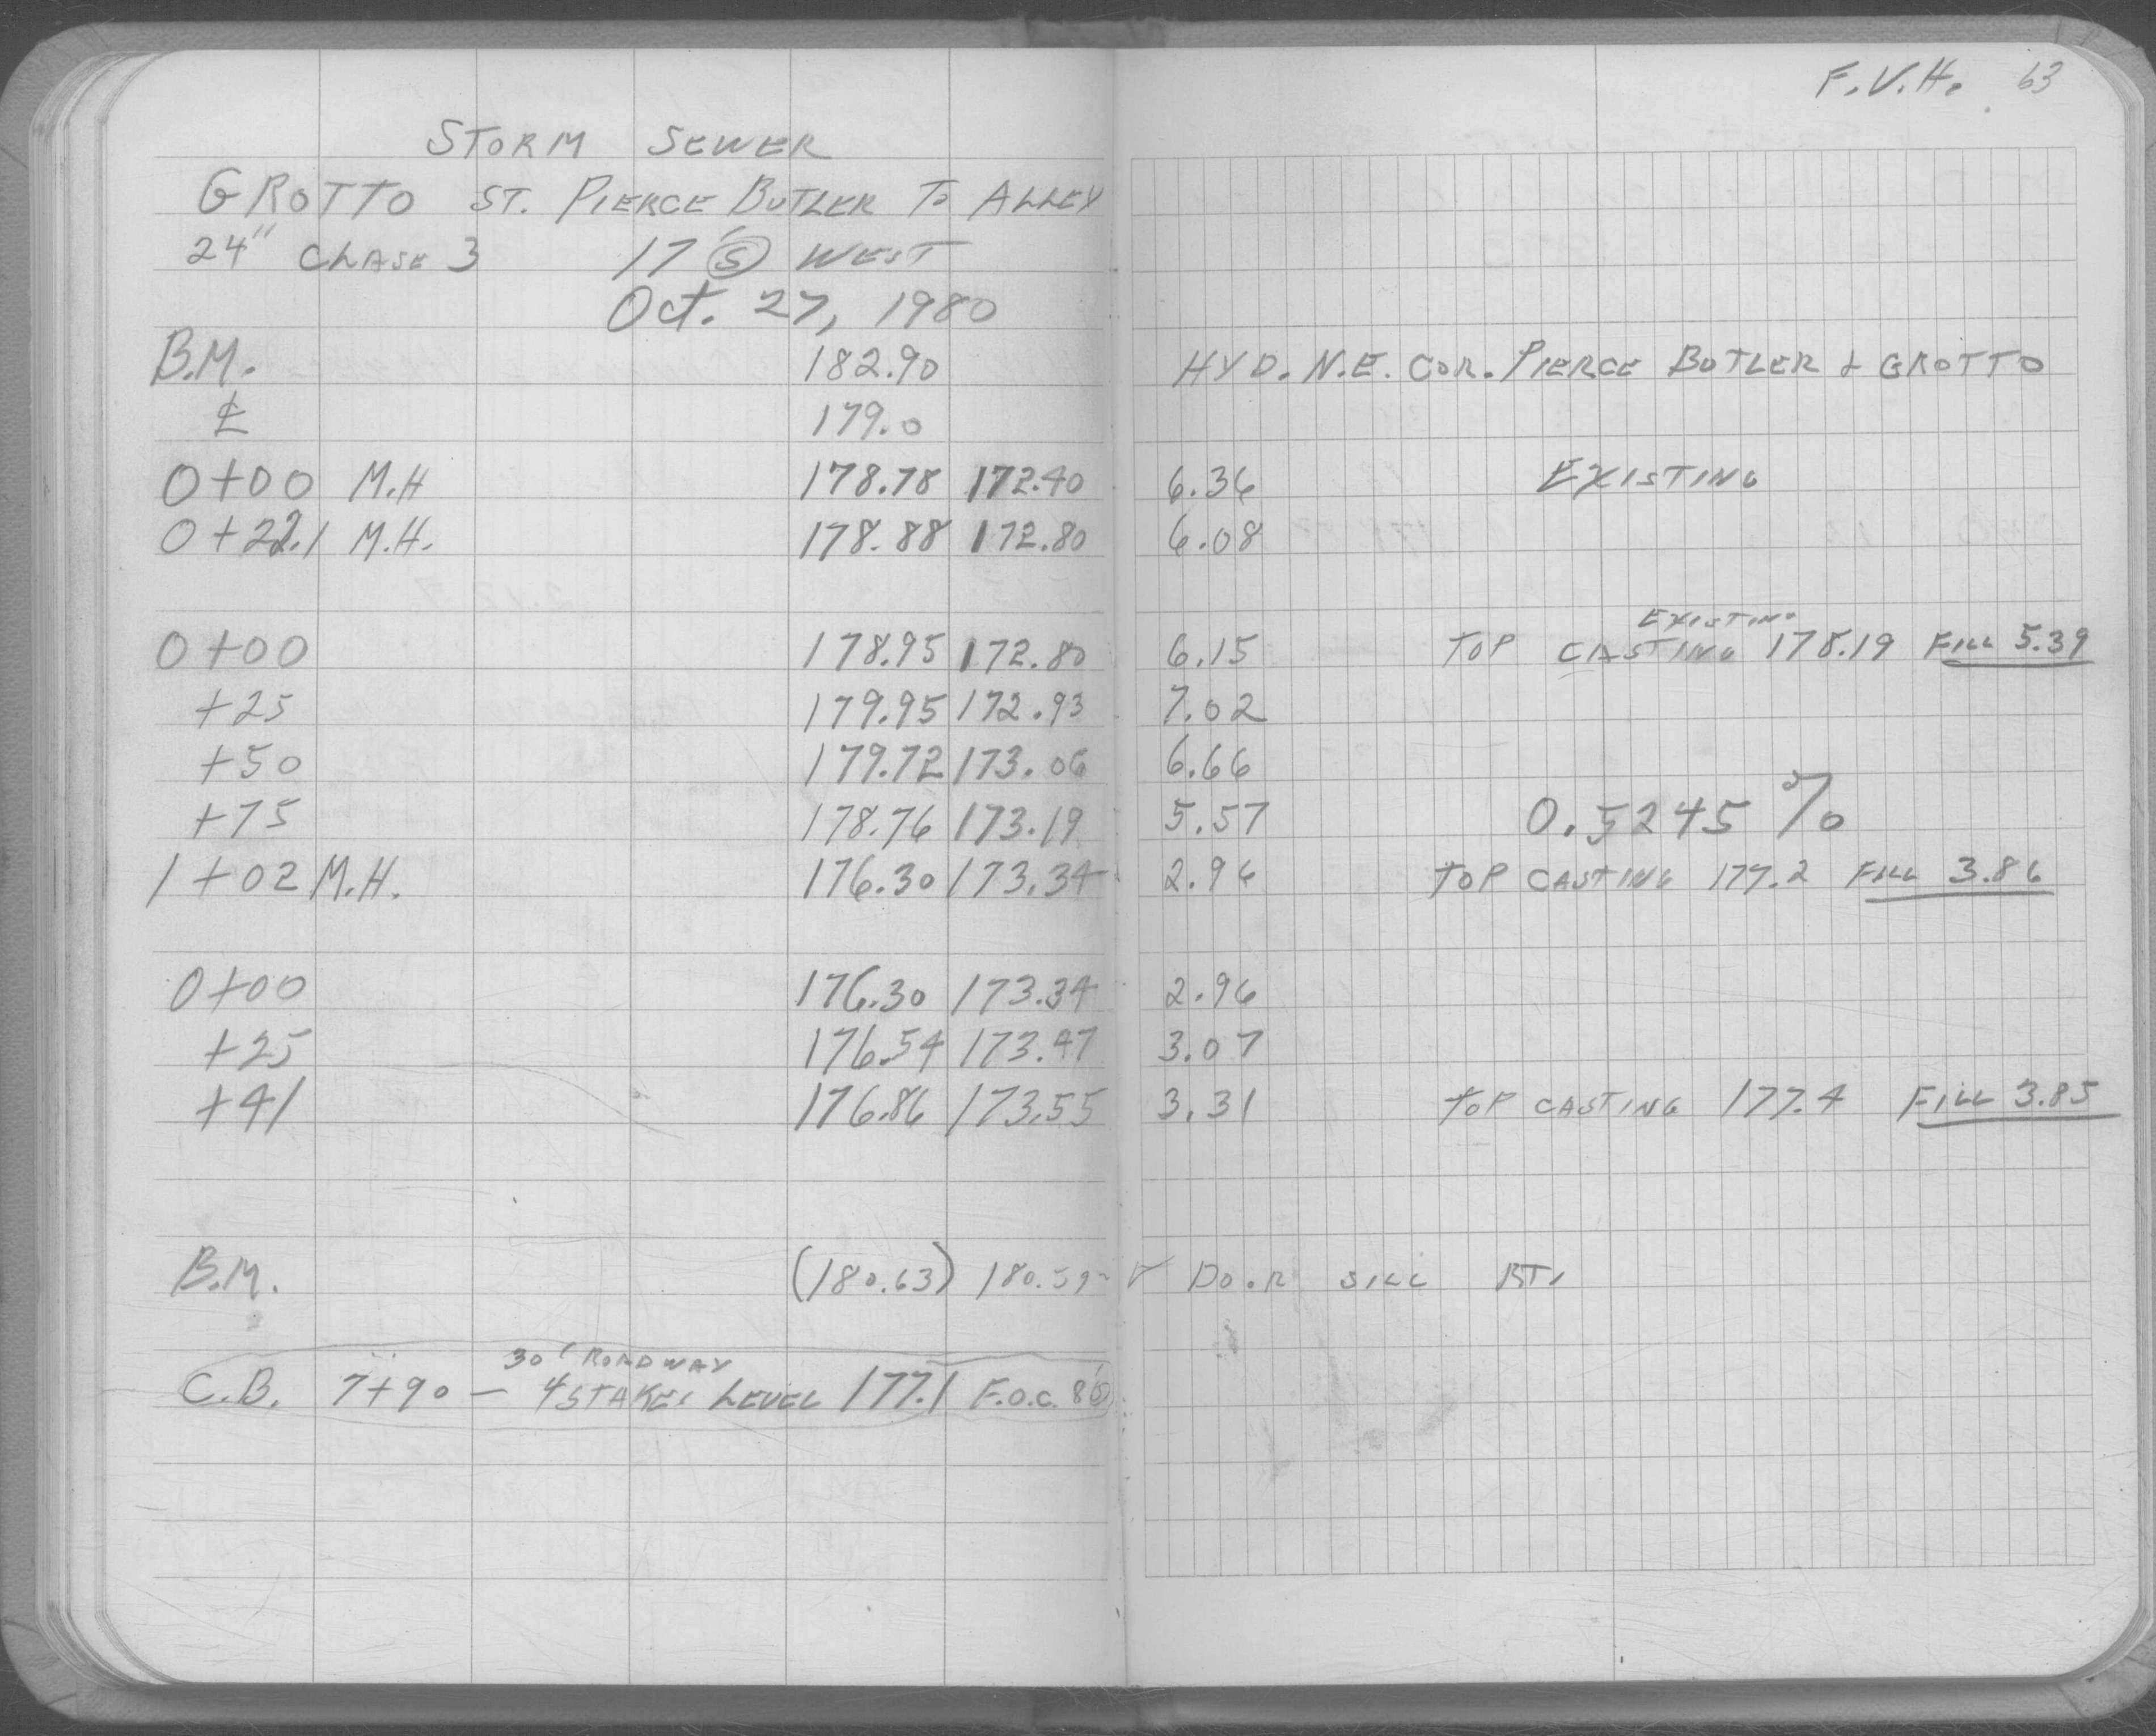 F.V.H. 63
STORM SEWER
GROTTO ST. PIERCE BUTLER TO ALLEY
24" CLASS 3 17' Ⓢ WEST
Oct. 27, 1980
B.M. 182.90 HYD. N.E. COR. PIERCE BUTLER & GROTTO
℄ 179.0
0+00 M.H 178.78 172.40 6.36 EXISTING
0+22.1 M.H. 178.88 172.80 6.08
EXISTING
0+00 178.95 172.80 6.15 TOP CASTING 178.19 FILL 5.39
+25 179.95 172.93 7.02
+50 179.72 173.06 6.66
+75 178.76 173.19 5.57 0.5245 %
1+02 M.H. 176.30 173.34 2.96 TOP CASTING 177.2 FILL 3.86
0+00 176.30 173.34 2.96
+25 176.54 173.47 3.07
+41 176.86 173.55 3.31 TOP CASTING 177.4 FILL 3.85
B.M. (180.63) 180.59 DOOR SILL RT.
30' ROADWAY
C.B. 7+90 — 4 STAKES LEVEL 177.1 F.O.C. 8'Ⓢ